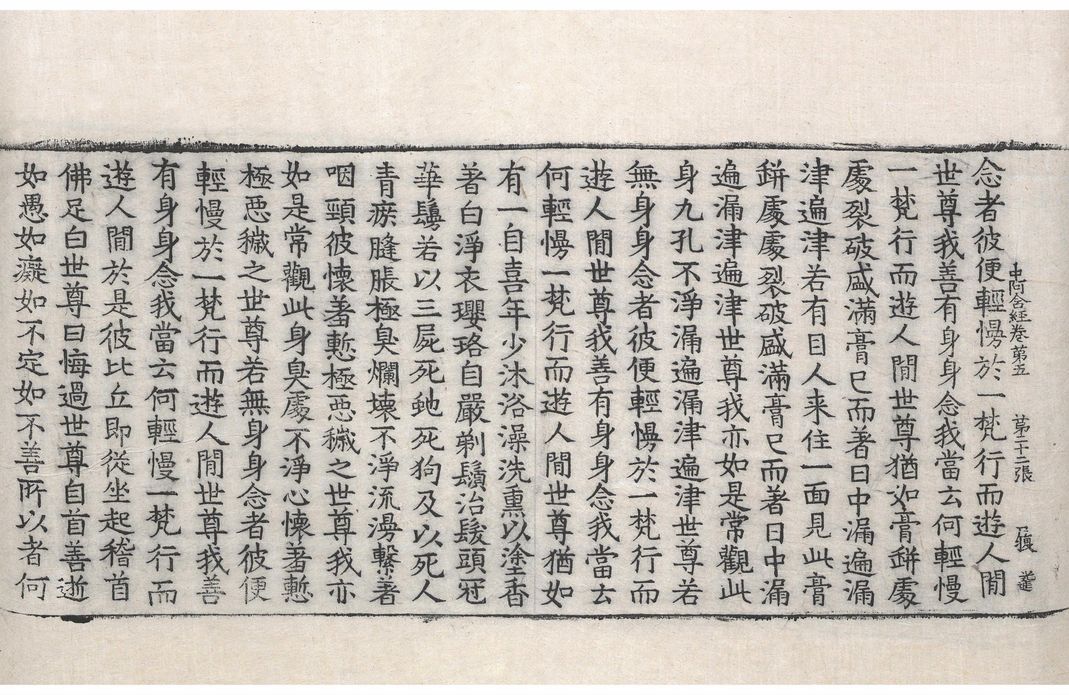 念者彼便輕慢於一梵行而遊人間
中阿含經卷第五 第二十二張
世尊我善有身身念我當云何輕慢
一梵行而遊人間世尊猶如膏缾處
處裂破盛滿膏已而著日中漏遍漏
津遍津若有目人来住一面見此膏
缾處處裂破盛滿膏已而著日中漏
遍漏津遍津世尊我亦如是常觀此
身九孔不淨漏遍漏津遍津世尊若
無身身念者彼便輕慢於一梵行而
遊人間世尊我善有身身念我當云
何輕慢一梵行而遊人間世尊猶如
有一自喜年少沐浴澡洗熏以塗香
著白淨衣瓔珞自嚴剃鬚治髮頭冠
華鬘若以三屍死虵死狗及以死人
青瘀膖脹極臭爛壞不淨流漫繫著
咽頸彼懷羞慙極惡穢之世尊我亦
如是常觀此身臭處不淨心懷羞慙
極惡穢之世尊若無身身念者彼便
輕慢於一梵行而遊人間世尊我善
有身身念我當云何輕慢一梵行而
遊人間於是彼比丘即從坐起稽首
佛足白世尊曰悔過世尊自首善逝
如愚如癡如不定如不善所以者何